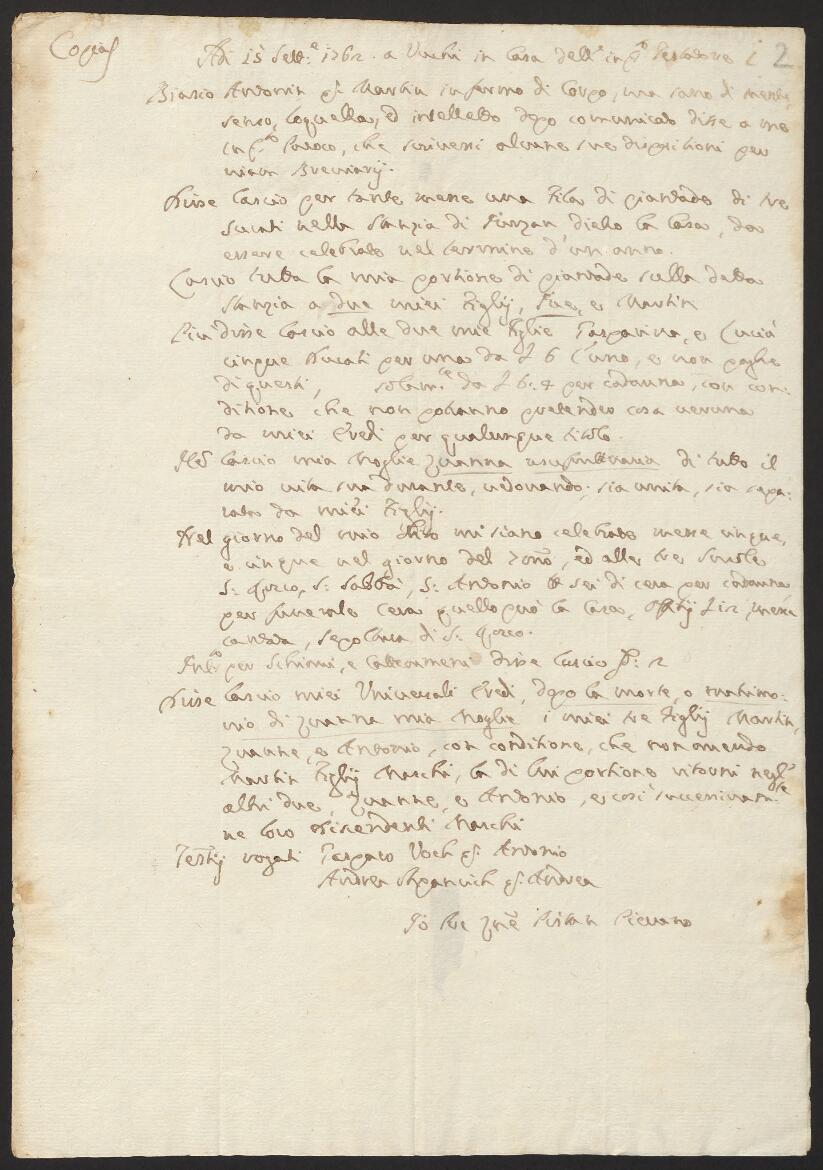 Copia
Adi 15 Sett:e 1762. a Vochi in Casa dell' inf:to Testadore 2
Biasio Antonin q: Martin infermo di Corpo, ma sano di mente,
senso, loquella, ed intelletto dopo comunicato disse a me
inf:to Paroco, che scrivessi alcune sue disposizioni per
Breviarij.
Disse lascio per tante messe una Fila di piantade di tre
nella Stanzia di dietro la Casa, da
essere celebrate nel termine d'un anno.
Lascio tutta la mia portione di piantade sulla detta
Stanzia a due miei Figlij, e Martin
Più disse lascio alle due mie figlie Gasparina, e Lucia
cinque Ducati per una da £ 6 l'uno, e non
di questi, solam:te da £ 6:4 per cadauna, con con:
ditione che non potranno pretender cosa veruna
da miei Eredi per qualunque titolo.
Ittõ lascio mia Moglie Zuanna usufruttuaria di tutto il
mio vita sua durante, vedovando, sia unita, sia sepa:
rata da miei Figlij.
Nel giorno del mio Obito mi siano celebrate messe cinque,
e cinque nel giorno del 7mo, ed alle tre Scuole
S: Rocco, S: Sabba, S: Antonio £ sei di cera per cadauna,
per funerale cera quello può la Casa, Offitij £ 12, messa
cantada, sepoltura di S: Rocco.
per Schiavi, e Cattecumeni disse lascio £: 2
Disse lascio miei Universali Eredi, dopo la morte, o matrimo:
nio di Zuanna mia Moglie i miei tre Figlij Martin,
Zuanne, e Antonio, con conditione, che non avendo
Martin Figlij Maschi, la di lui portione ritorni negl'
altri due, Zuanne, e Antonio, e così successivam:te
ne loro discendenti Maschi
Testij rogati Gasparo Voch q: Antonio
Andrea q: Andrea
Io Pre Zne Pievano